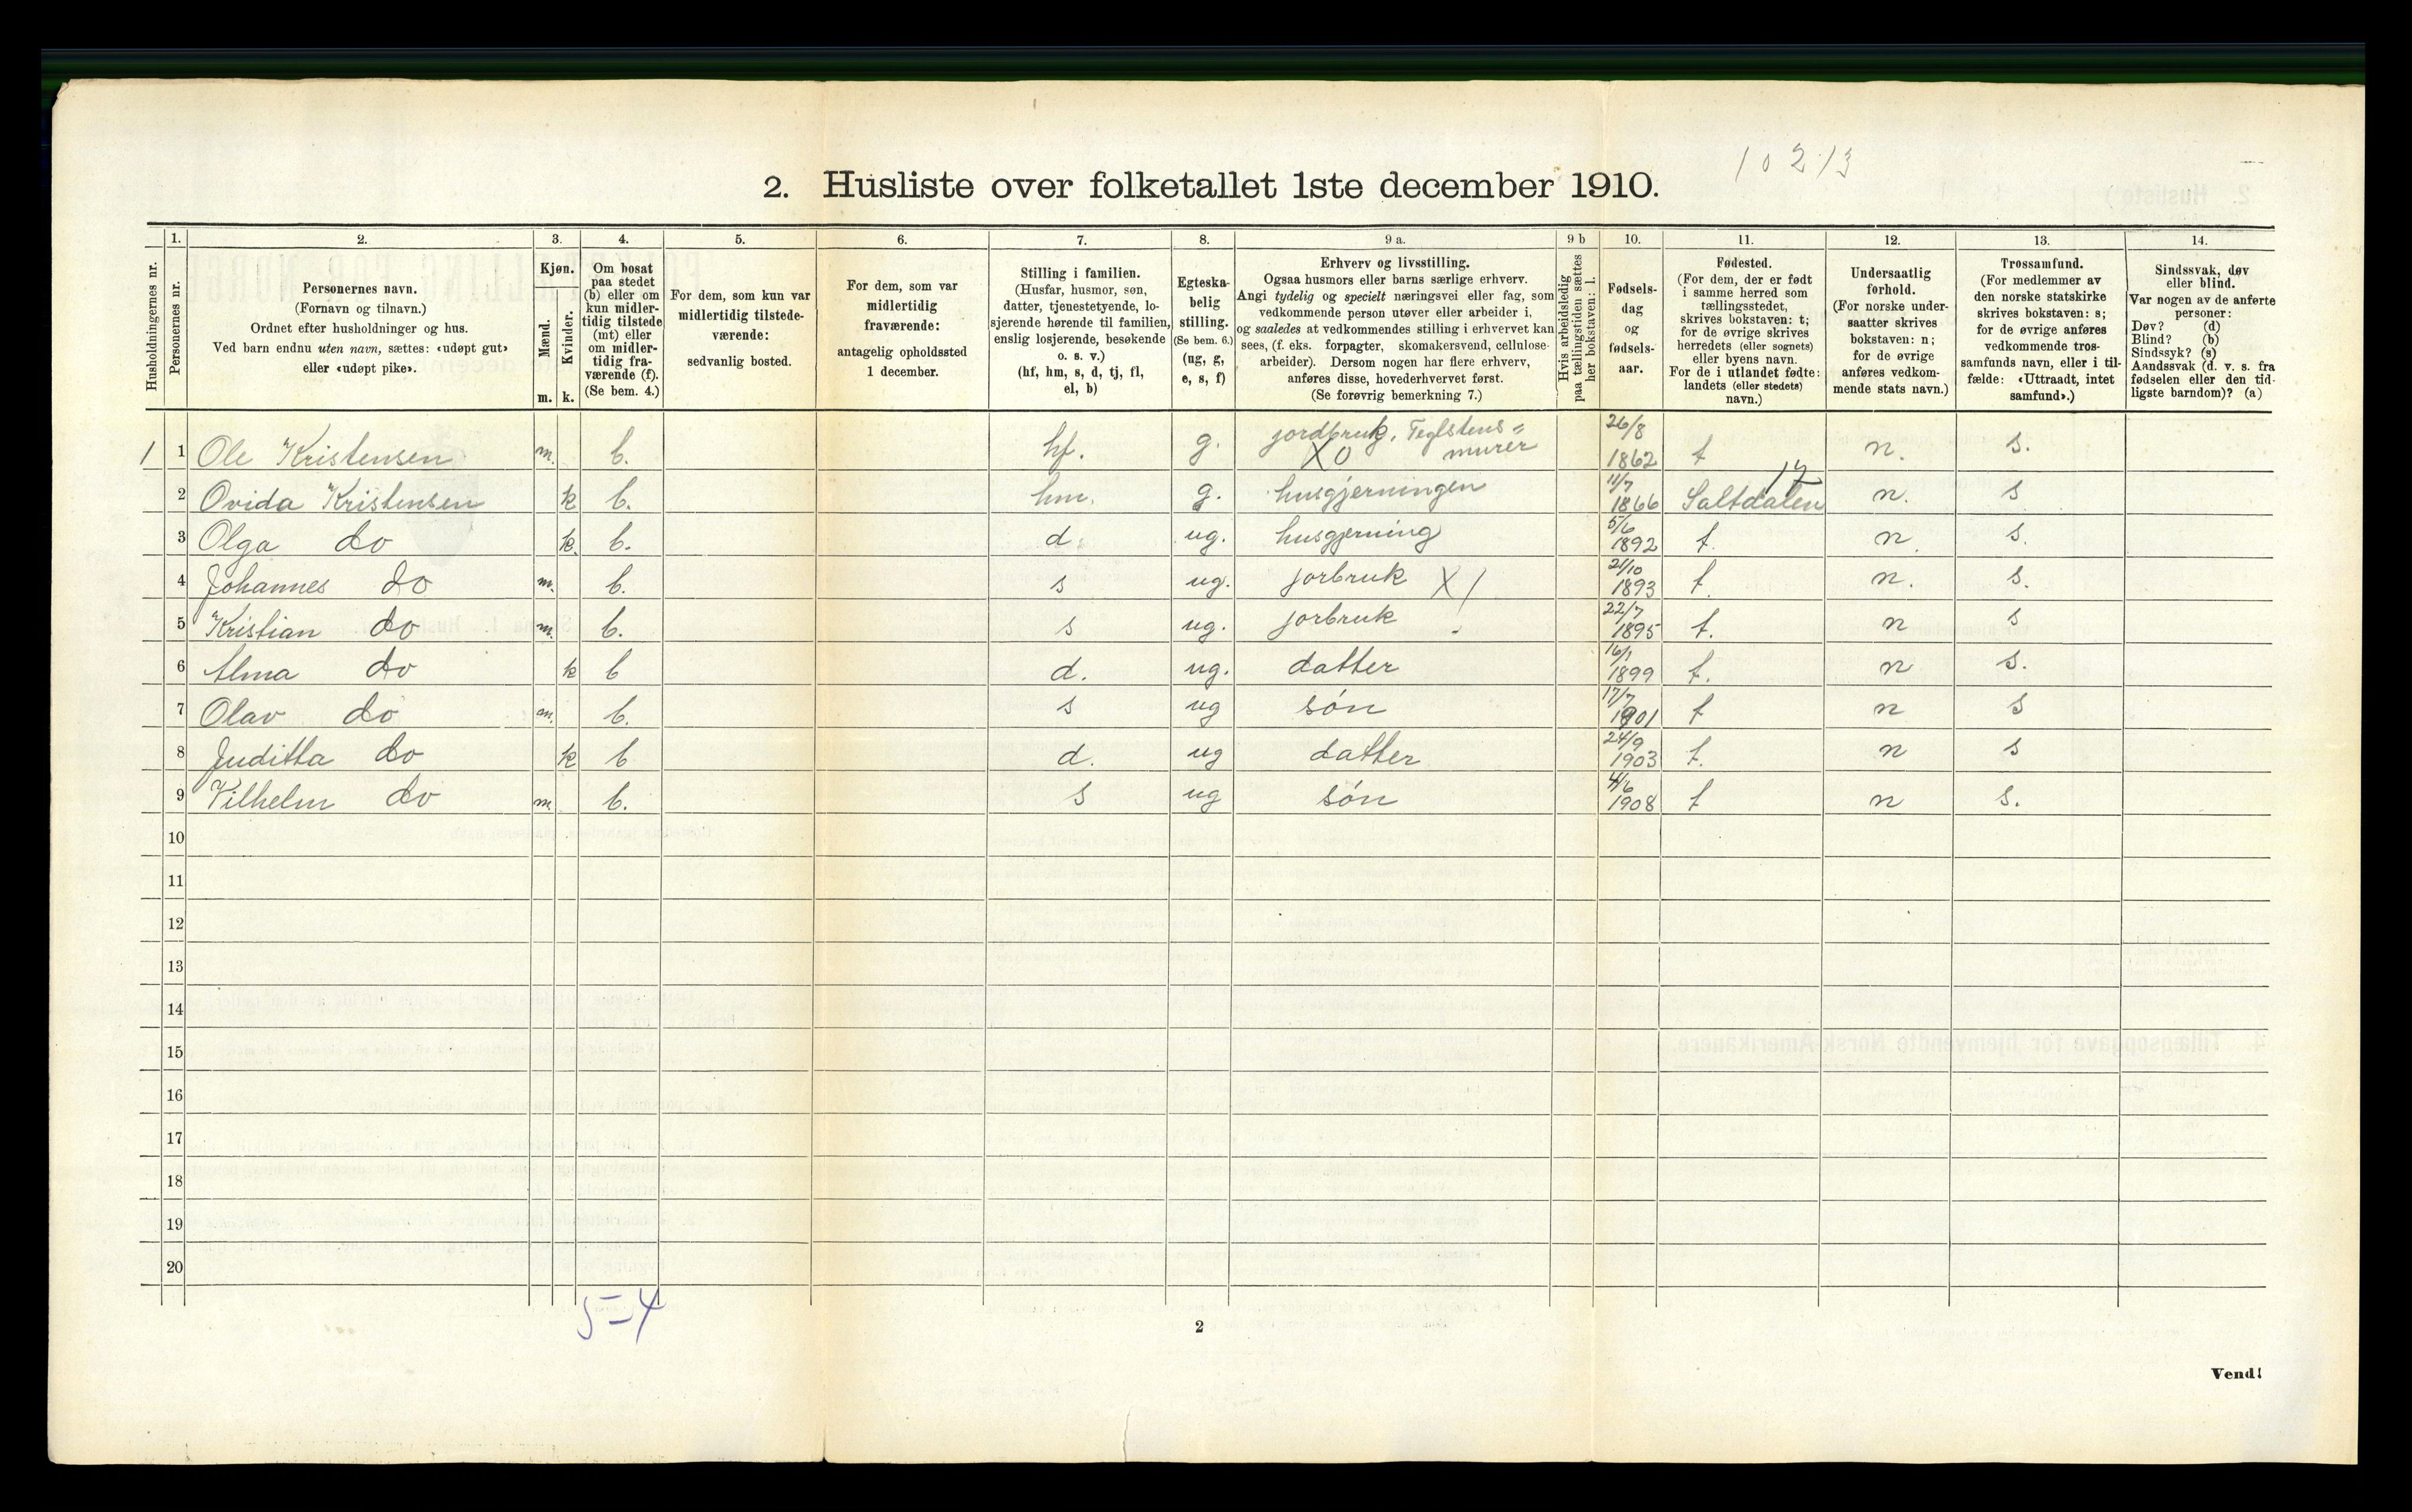 10213
2. Husliste over folketallet 1ste december 1910.
Husholdningernes nr.
1.
Personernes nr.
2.
Personernes navn.
(Fornavn og tilnavn.)
Ordnet efter husholdninger og hus.
Ved barn endnu uten navn, sættes: «udøpt gut»
eller «udøpt pike».
3.
Kjøn.
Mænd.
Kvinder.
m. k.
4.
Om bosat
paa stedet
(b) eller om
kun midler-
tidig tilstede
(mt) eller
om midler-
tidig fra-
værende (f).
(Se bem. 4.)
5.
For dem, som kun var
midlertidig tilstede-
værende:
sedvanlig bosted.
6.
For dem, som var
midlertidig
fraværende:
antagelig opholdssted
1 december.
7.
Stilling i familien.
(Husfar, husmor, søn,
datter, tjenestetyende, lo-
sjerende hørende til familien,
enslig losjerende, besøkende
o. s. v.)
(hf, hm, s, d, tj, fl,
el, b)
8.
Egteska-
belig
stilling.
(Se bem. 6.)
(ug, g,
e, s, f)
9 a.
Erhverv og livsstilling.
Ogsaa husmors eller barns særlige erhverv.
Angi tydelig og specielt næringsvei eller fag, som
vedkommende person utøver eller arbeider i,
og saaledes at vedkommendes stilling i erhvervet kan
sees, (f. eks. forpagter, skomakersvend, cellulose-
arbeider). Dersom nogen har flere erhverv,
anføres disse, hovederhvervet først.
(Se forøvrig bemerkning 7.)
9 b
Hvis arbeidsledig
paa tællingstiden sættes
her bokstaven: l.
10.
Fødsels-
dag
og
fødsels-
aar.
11.
Fødested.
(For dem, der er født
i samme herred som
tællingsstedet,
skrives bokstaven: t;
for de øvrige skrives
herredets (eller sognets)
eller byens navn.
For de i utlandet fødte:
landets (eller stedets)
navn.)
12.
Undersaatlig
forhold.
(For norske under-
saatter skrives
bokstaven: n;
for de øvrige
anføres vedkom-
mende stats navn.)
13.
Trossamfund.
(For medlemmer av
den norske statskirke
skrives bokstaven: s;
for de øvrige anføres
vedkommende tros-
samfunds navn, eller i til-
fælde: «Uttraadt, intet
samfund».)
14.
Sindssvak, døv
eller blind.
Var nogen av de anførte
personer:
Døv? (d)
Blind? (b)
Sindssyk? (s)
Aandssvak (d. v. s. fra
fødselen eller den tid-
ligste barndom)? (a)
1 1 Ole Kristensen m. b. hf. g. jordbruk, Teglstens= murer X0 26/8 1862 t n. s.
2 Ovida Kristensen k b. hm. g. husgjerningen 11/7 1866 Saltdalen 17 n. s
3 Olga do k. b. d. ug. husgjerning 5/6 1892 t. n. s.
4 Johannes do m. b. s ug. jorbruk X1 21/10 1893 t. n. s.
5 Kristian do m. b. s ug. jorbruk 22/7 1895 t. n s
6 Alma do k b d. ug. datter 16/1 1899 t. n s.
7 Olav do m. b. s ug søn 17/7 1901 t n s
8 Juditta do k b d. ug datter 24/9 1903 t. n s
9 Vilhelm do m. b. s ug søn 4/6 1908 t n s.
10
11
12
13
14
15
16
17
18
19
20
5-4
2
Vend!